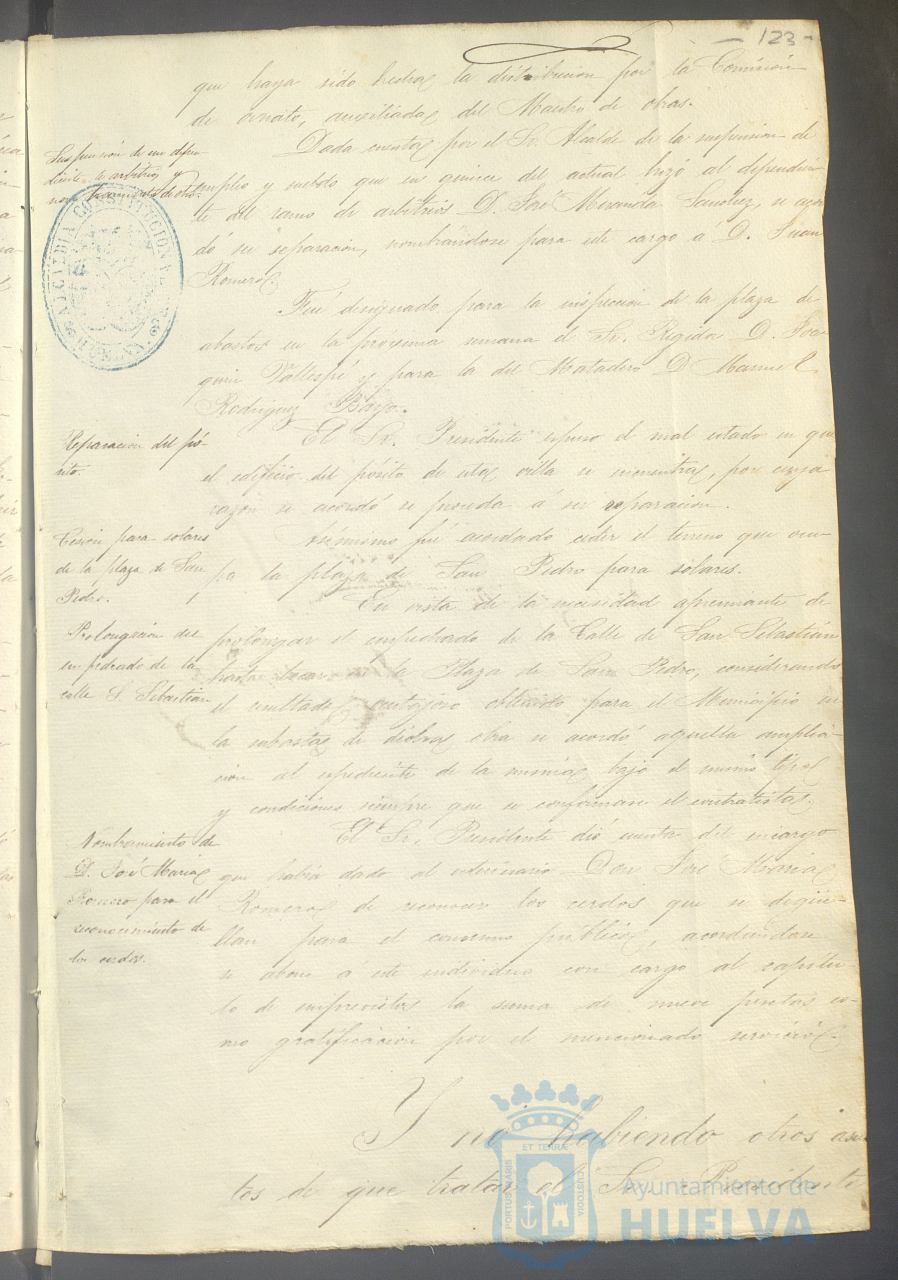 - 123 -
que haya sido hecha la distribucion por la Comisión
de ornato, auxiliada del Maestro de obras.
Suspensión de un depen-
diente de arbitrios y
nombramiento de otro.
Dada cuenta por el Sr. Alcalde de la suspension de
empleo y sueldo que en quince del actual hizo al dependien-
te del ramo de arbitrios D. José Miranda Sanchez, se acor-
dó su separación, nombrándose para este cargo á D. Juan
Romero.
ALCALDIA CONSTITUCIONAL
HUELVA
Fué designado para la inspeccion de la plaza de
abastos en la próxima semana el Sr. Regidor D. Joa-
quin Vallespí y para la del Matadero D Manuel
Rodriguez Bayo.
Reparacion del pó-
sito.
El Sr. Presidente espuso el mal estado en que
el edificio del pósito de esta villa se encuentra, por cuya
razon se acordó se proceda á su reparacion.
Cesion para solares
de la plaza de San
Pedro.
Asimismo fué acordado ceder el terreno que ocu-
pa la plaza de San Pedro para solares.
Prolongacion del
empedrado de la
calle S. Sebastian
En vista de la necesidad apremiante de
prolongar el empedrado de la Calle de San Sebastián
hasta tocar en la Plaza de San Pedro, considerando
el resultado ventajoso obtenido para el Municipio en
la subasta de dicha obra se acordó aquella amplia-
cion al espediente de la misma bajo el mismo tipo
y condiciones siempre que se conformare el contratista.
Nombramiento de
D. José Maria
Romero para el
reconocimiento de
los cerdos.
El Sr. Presidente dió cuenta del encargo
que habia dado al veterinario Don José Maria
Romero de reconocer los cerdos que se degüe-
llan para el consumo público, acordandose
se abone á este individuo con cargo al capitu-
lo de imprevistos la suma de nueve pesetas co-
mo gratificacion por el mencionado servicio.
Y no habiendo otros asun-
tos de que tratar el Sr. Presidente
PORTUS MARIS ET TERRÆ CUSTODIA
Ayuntamiento de
HUELVA